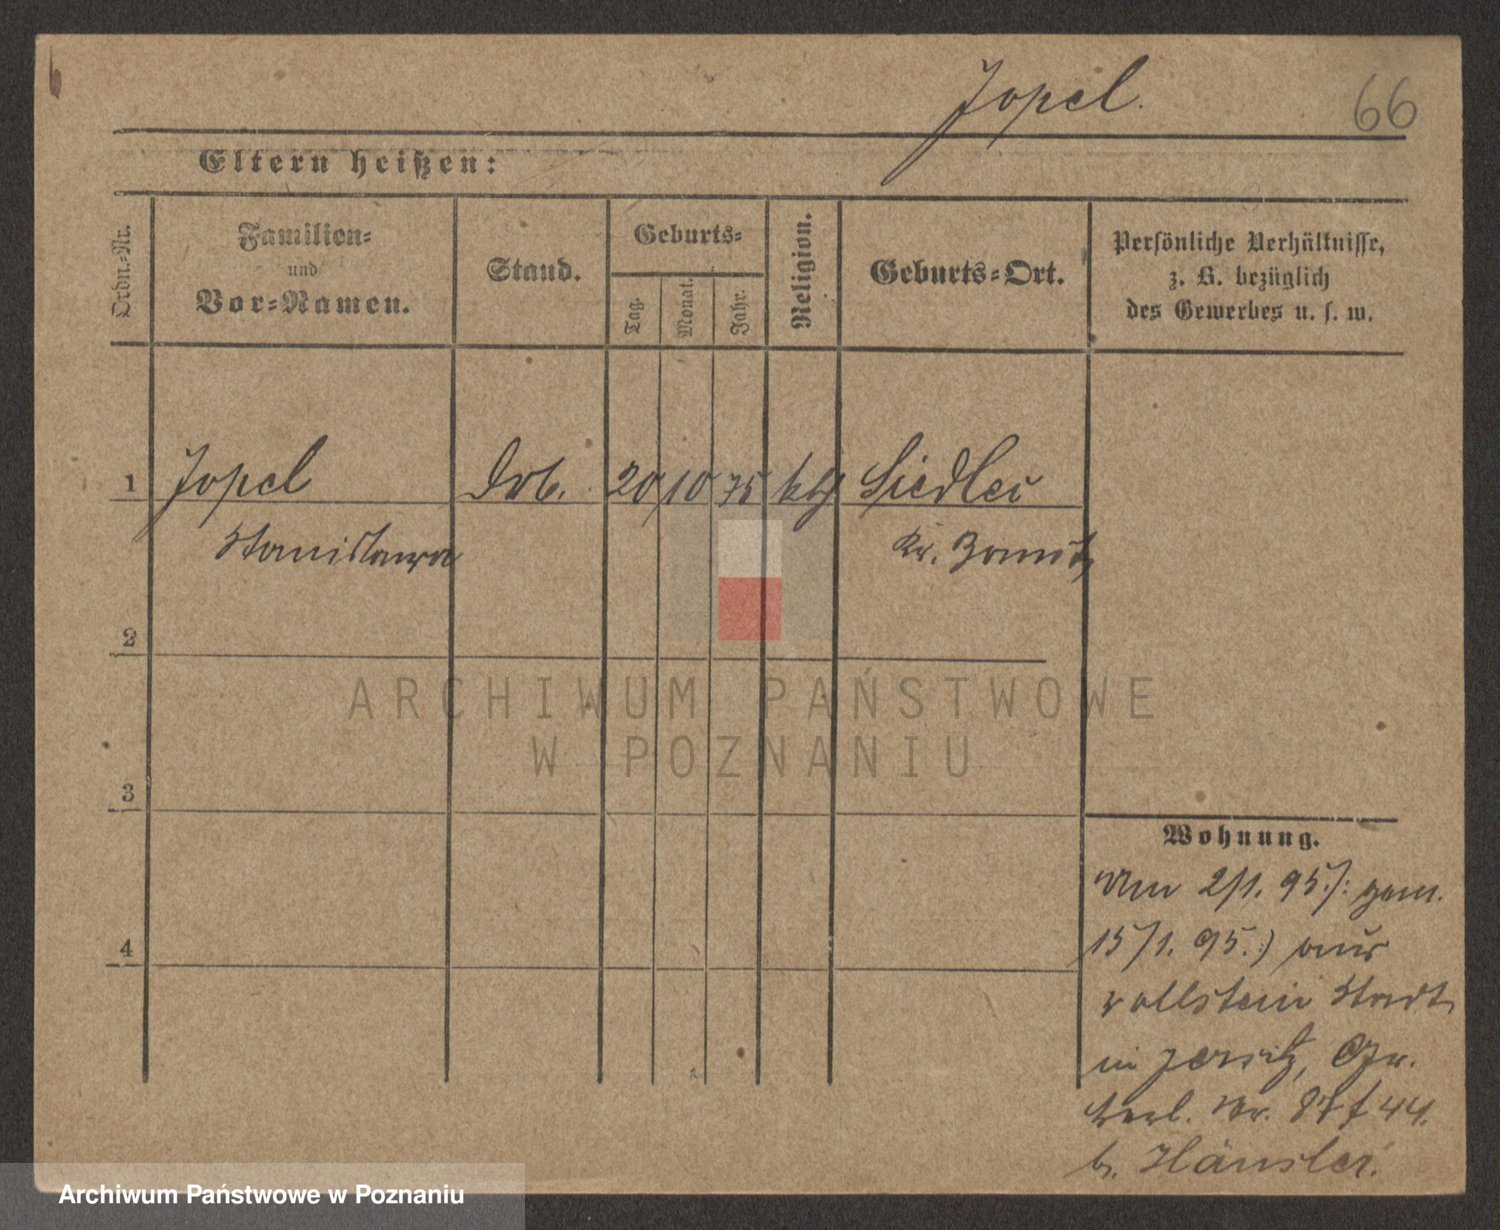 Jopel.
66
Eltern heißen:
Ordn.-Nr.
Familien-
und
Vor-Namen.
Stand.
Geburts-
Tag.
Monat.
Jahr.
Religion.
Geburts-Ort.
Persönliche Verhältnisse,
z. B. bezüglich
des Gewerbes u. s. w.
1 Jopel 20 10 75 kth Siedlec
Stanisława Kr. Bomst
2
3
4
Wohnung.
Am 2/1. 95 /: gem.
15/1. 95. :) aus
Wollstein Stadt
in Jersitz, Gr.
Berl. Str. 87 f 44.
b. Hänsler.
ARCHIWUM PAŃSTWOWE
W POZNANIU
Archiwum Państwowe w Poznaniu